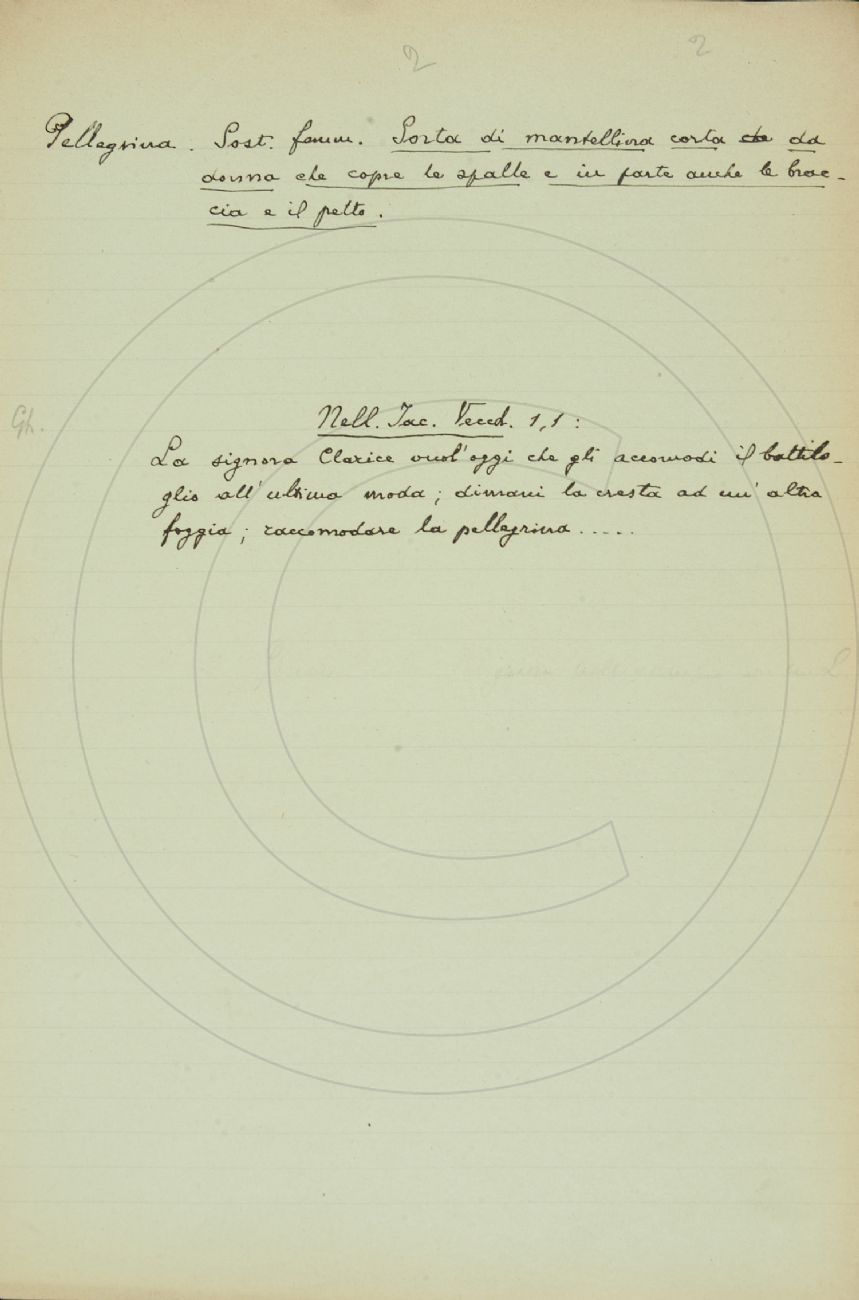 2 2
Pellegrina. Sost. femm. Sorta di mantellina corta che da
donna che copre le spalle e in parte anche le brac-
cia e il petto.
Gh.
Nell. Iac. Vecch. 1, 1:
La signora Clarice vuol'oggi che gli accomodi il battilo-
glio all'ultima moda; dimani la cresta ad un'altra
foggia; raccomodare la pellegrina.....